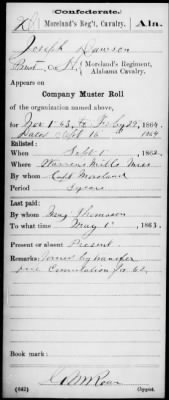 Confederate.
Moreland's Reg't, Cavalry. Ala.
Joseph Dawson
Co. Moreland's Regiment,
Alabama Cavalry.
Appears on
Company Muster Roll
of the organization named above,
for Nov 1 '63, to Feby 29, 1864.
Dated Sept 16 1864
Enlisted:
When Sept 1, 1862
Where Warrens Mills Miss
By whom Capt Moreland
Period 3 years
Last paid:
By whom Maj Thomason
To what time May 1, 1863.
Present or absent Present
Remarks: Joined by transfer
due Comutation for 62
Book mark:
(642) Copyist.